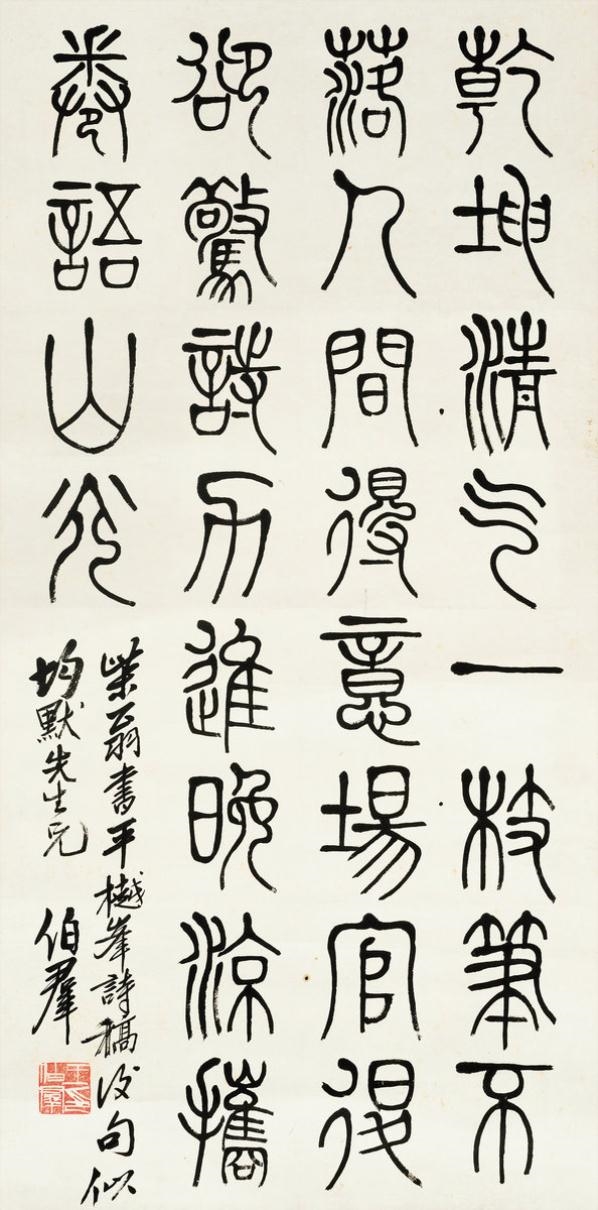 乾坤清气一枝筆不
落人間得意場官後
卻驚詩力進晚涼攜
卷語山光
柴翁書平樾峯詩稿後句似
均默先生兄 伯羣